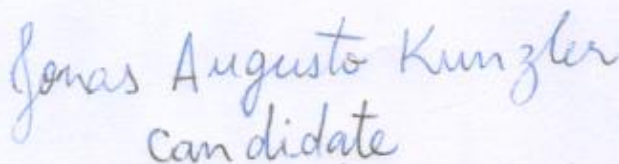 Jonas Augusto Kunzler
candidate